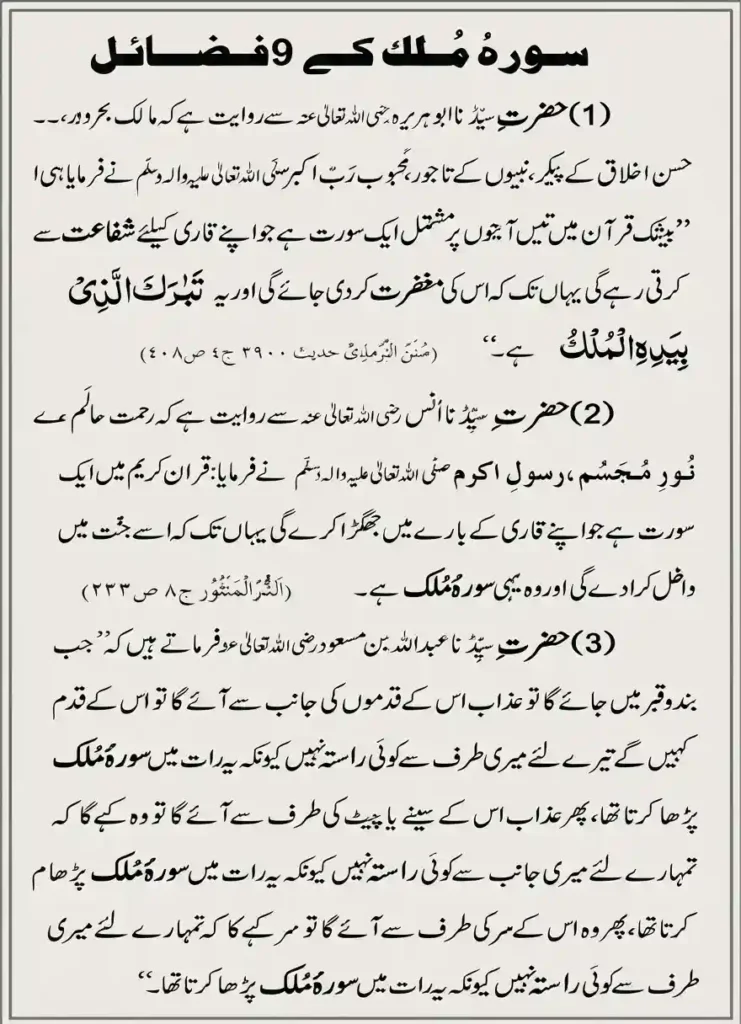 سورہُ مُلك کے 9 فضائل
(1) حضرتِ سیِّدُنا ابو ہریرہ رضی اللہ تعالیٰ عنہ سے روایت ہے کہ مالک بحروبر، ۔۔
حسن اخلاق کے پیکر، نبیوں کے تاجور، محبوب رَبّ اکبر صلَّی اللہ تعالیٰ علیہ والہ وسلَّم نے فرمایا ہی ا
”بیشک قرآن میں تیس آیتوں پر مشتمل ایک سورت ہے جو اپنے قاری کیلئے شفاعت سے
کرتی رہے گی یہاں تک کہ اس کی مغفرت کر دی جائے گی اور یہ تَبٰرَكَ الَّذِىْ
بِيَدِهِ الْمُلْكُ ہے۔“ (سُنَنُ التِّرْمِذِیّ حدیث ۳۹۰۰ ج٤ ص٤٠٨)
(2) حضرتِ سیِّدُنا اَنس رضی اللہ تعالیٰ عنہ سے روایت ہے کہ رحمت حالَم ے
نُورِ مُجَسَّم، رسولِ اکرم صلَّی اللہ تعالیٰ علیہ والہ وسلَّم نے فرمایا: قران کریم میں ایک
سورت ہے جو اپنے قاری کے بارے میں جھگڑا کرے گی یہاں تک کہ اسے جنّت میں
داخل کرادے گی اور وہ یہی سورۂ مُلک ہے۔ (اَلدُّرُّالْمَنْثُوْر ج٨ ص٢٣٣)
(3) حضرتِ سیِّدُنا عبداللہ بن مسعود رضی اللہ تعالیٰ عنہ فرماتے ہیں کہ” جب
بندہ قبر میں جائے گا تو عذاب اس کے قدموں کی جانب سے آئے گا تو اس کے قدم
کہیں گے تیرے لئے میری طرف سے کوئی راستہ نہیں کیونکہ یہ رات میں سورۂ مُلک
پڑھا کرتا تھا، پھر عذاب اس کے سینے یا پیٹ کی طرف سے آئے گا تو وہ کہے گا کہ
تمہارے لئے میری جانب سے کوئی راستہ نہیں کیونکہ یہ رات میں سورۂ مُلک پڑھا م
کرتا تھا، پھر وہ اس کے سر کی طرف سے آئے گا تو سر کہے کا کہ تمہارے لئے میری
طرف سے کوئی راستہ نہیں کیونکہ یہ رات میں سورۂ مُلک پڑھا کرتا تھا۔“